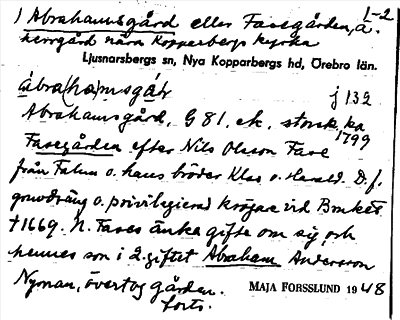 1-2
1) Abrahamsgård eller Fasegården, a.
herrgård nära Kopparbergs kyrka
Ljusnarsbergs sn, Nya Kopparbergs hd, Örebro län.
ábra(ha)msgár j 132
Abrahamsgård, G 81. ek. storsk. ka 1799
Fasegården efter Nils Olsson Fase
från Falun o. hans bröder Klas o. Harald. D. f.
gruvdräng o. privilegierad krögare vid Bruket
†1669. N. Fases änka gifte om sig, och
hennes son i 2. giftet Abraham Andersson
Nyman, övertog gården.
forts.
MAJA FORSSLUND 1948